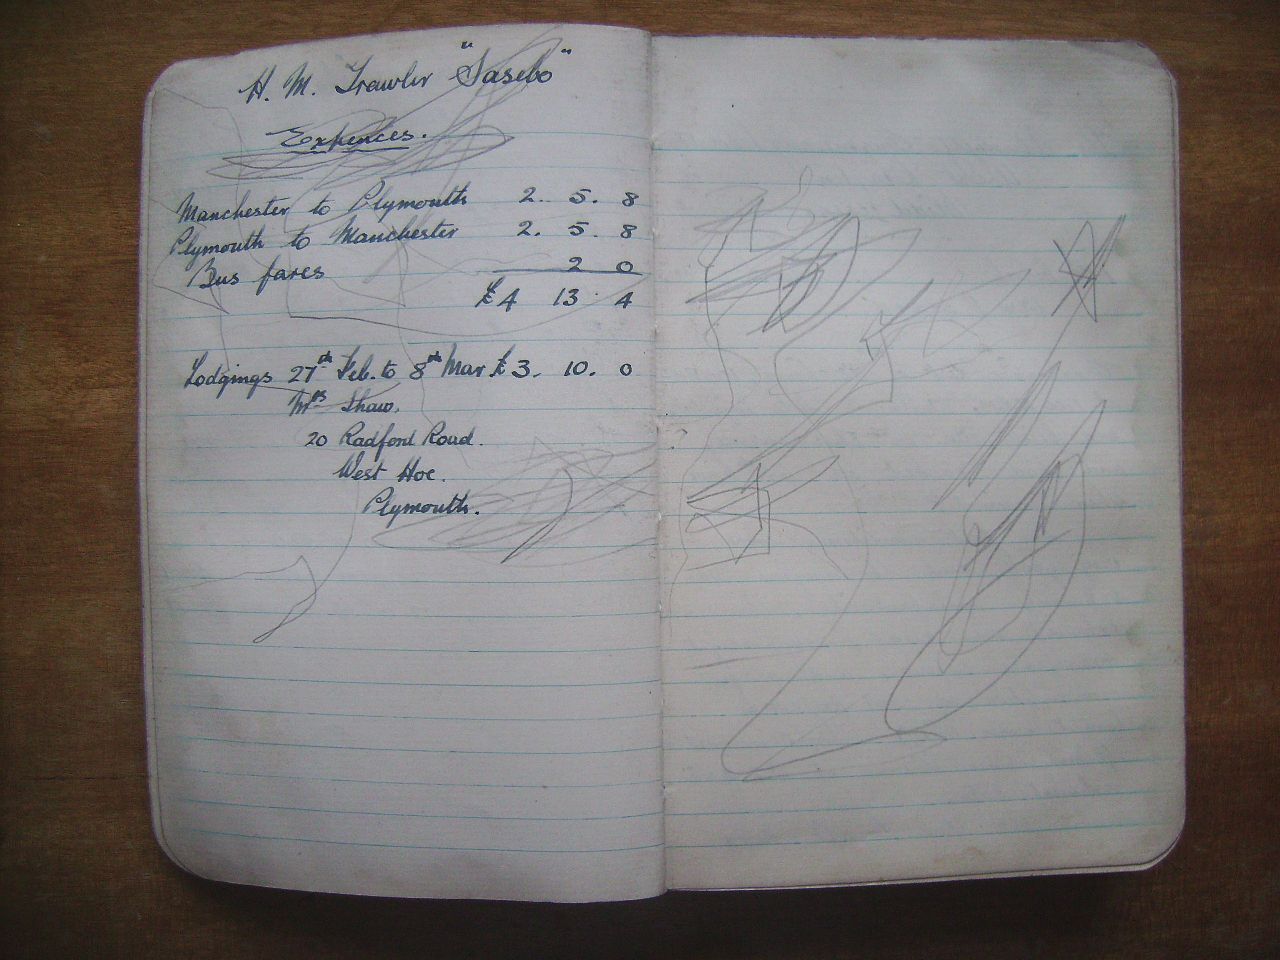 H. M. Trawler "Sasebo"
Expences.
Manchester to Plymouth 2. 5. 8
Plymouth to Manchester 2. 5. 8
Bus fares 2 0
£4 13 4
Lodgings 27th Feb. to 8th Mar £3. 10. 0
Mrs Shaw.
20 Radford Road.
West Hoe.
Plymouth.